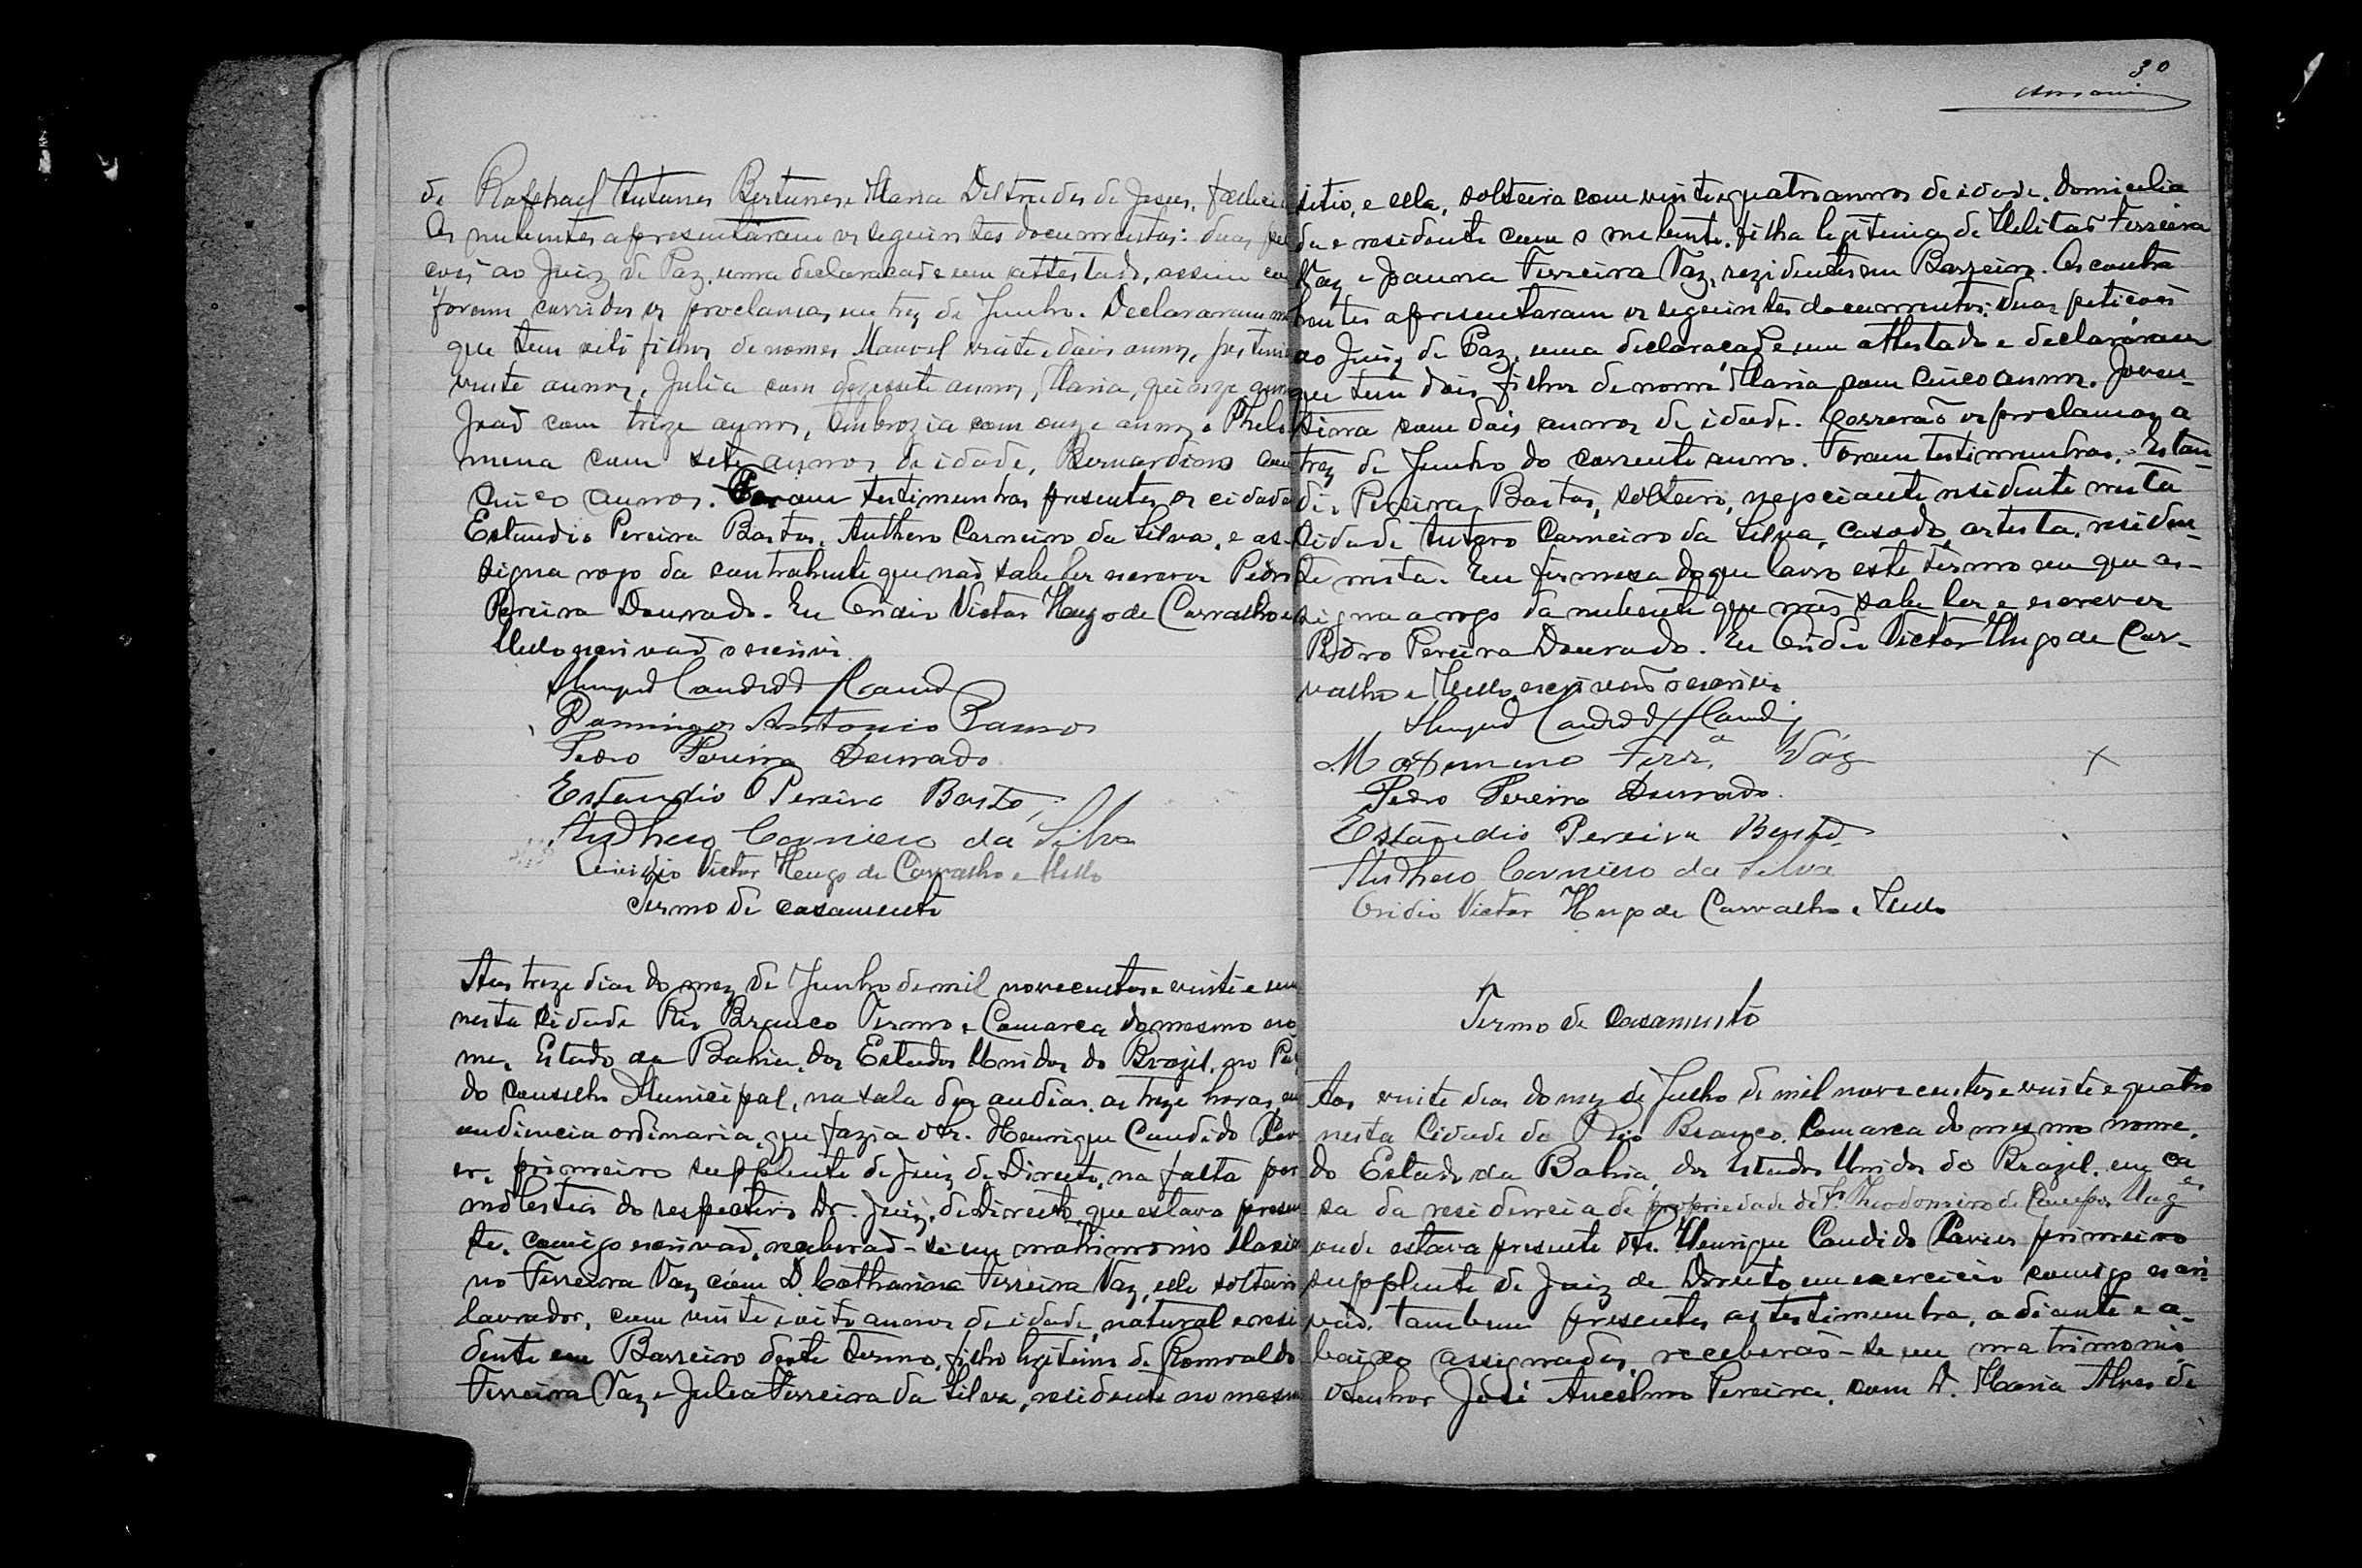 de Raphael Antunes Bertunes e Maria Deltrudes de Jesus,
Os nubentes apresentaram os seguintes documentos: duas
ções ao Juiz de Paz, uma declaração e um attestado, assim
foram corridos os proclamas em trez de Junho. Declararam
que tem oito filhos de nomes Manoel vinte e dois annos,
vinte annos, Julia com dezessete annos, Maria, quinze
João com treze annos, Ambrozia com onze annos e Philo
mena com sete annos de idade, Bernardino com
cinco annos. Foram testimunhas presentes os cidadã
Estandio Pereira Bastos, Anthero Carneiro da Silva, e as-
signa rogo da contrahente que não sabe ler escrever Pedro
Pereira Dourado. Eu Ovidio Victor Hugo de Carvalho e
Mello escrivão o escrivi.
Domingos Antonio Ramos
Pedro Pereira Dourado
Estandio Pereira Basto
Anthero Carneiro da Silva
Ovidio Victor Hugo de Carvalho e Mello
Termo de casamento
Aos treze dias do mez de Junho de mil novecentos e vinte e um
nesta Cidade Rio Branco Termo e Comarca do mesmo no
me, Estado da Bahia, dos Estados Unidos do Brazil, no
do Conselho Municipal, na sala das audias. as treze horas, em
audiencia ordinaria, que fazia o Sr. Henrique Candido
er, primeiro supplente de Juiz de Direito, na falta por
molestia do respectivo Dr. Juiz de Direito, que estava presen
te, comigo escrivão, receberão-se em matrimonio
no Ferreira Vaz com D. Catharina Ferreira Vaz, elle solteiro
lavrador, com vinte e oito annos de idade, natural e resi
dente em Barreiro deste termo, filho legitimo de Romvaldo
Ferreira Vaz e Julia Ferreira da Silva, residente no mesmo
30
sitio, e ella, solteira com vinte e quatro annos de idade. Domicilia
da e residente com o nubente, filha legitima de Melitão Ferreira
Vaz e Joanna Ferreira Vaz, rezidentes em Barreiro. Os contra
hentes apresentaram os seguintes documentos: duas petições
ao Juiz de Paz, uma declaração e um attestado e declararam
que tem dois filhos de nome Maria com cinco annos. Joven-
tina com dois annos de idade. Correrão os proclamas a
trez de Junho do corrente anno. Foram testimunhas, Estan-
dio Pereira Bastos, solteiro, negociante residente nesta
Cidade Antero Carneiro da Silva, casado, artista, residen-
te nesta. Em firmeza do que lavro este têrmo em que as-
signa a rogo da nubente que não sabe ler e escrever
Pedro Pereira Dourado. Eu Ovidio Victor Hugo de Car-
valho e Mello, escrivão o escrivi.
Maximino Ferrª Váz X
Pedro Pereira Dourado.
Estandio Pereira Basto
Anthero Carneiro da Silva
Ovidio Victor Hugo de Carvalho e Mello
Termo de casamento
Aos vinte dias do mez de Julho de mil novecentos e vinte e quatro
nesta Cidade do Rio Branco, Comarca do mesmo nome,
do Estado da Bahia, dos Estados Unidos do Brazil, em ca
sa da residencia de propriedade do Sr. Theodomiro de Campos
onde estava presente o Sr. Henrique Candido Xavier primeiro
supplente de Juiz de Direito em exercicio comigo escri
vão, tambem presentes as testimunha, adiante e a-
baixo assignados, receberão-se em matrimonio
o Senhor José Ancelmo Pereira, com D. Maria Alves de